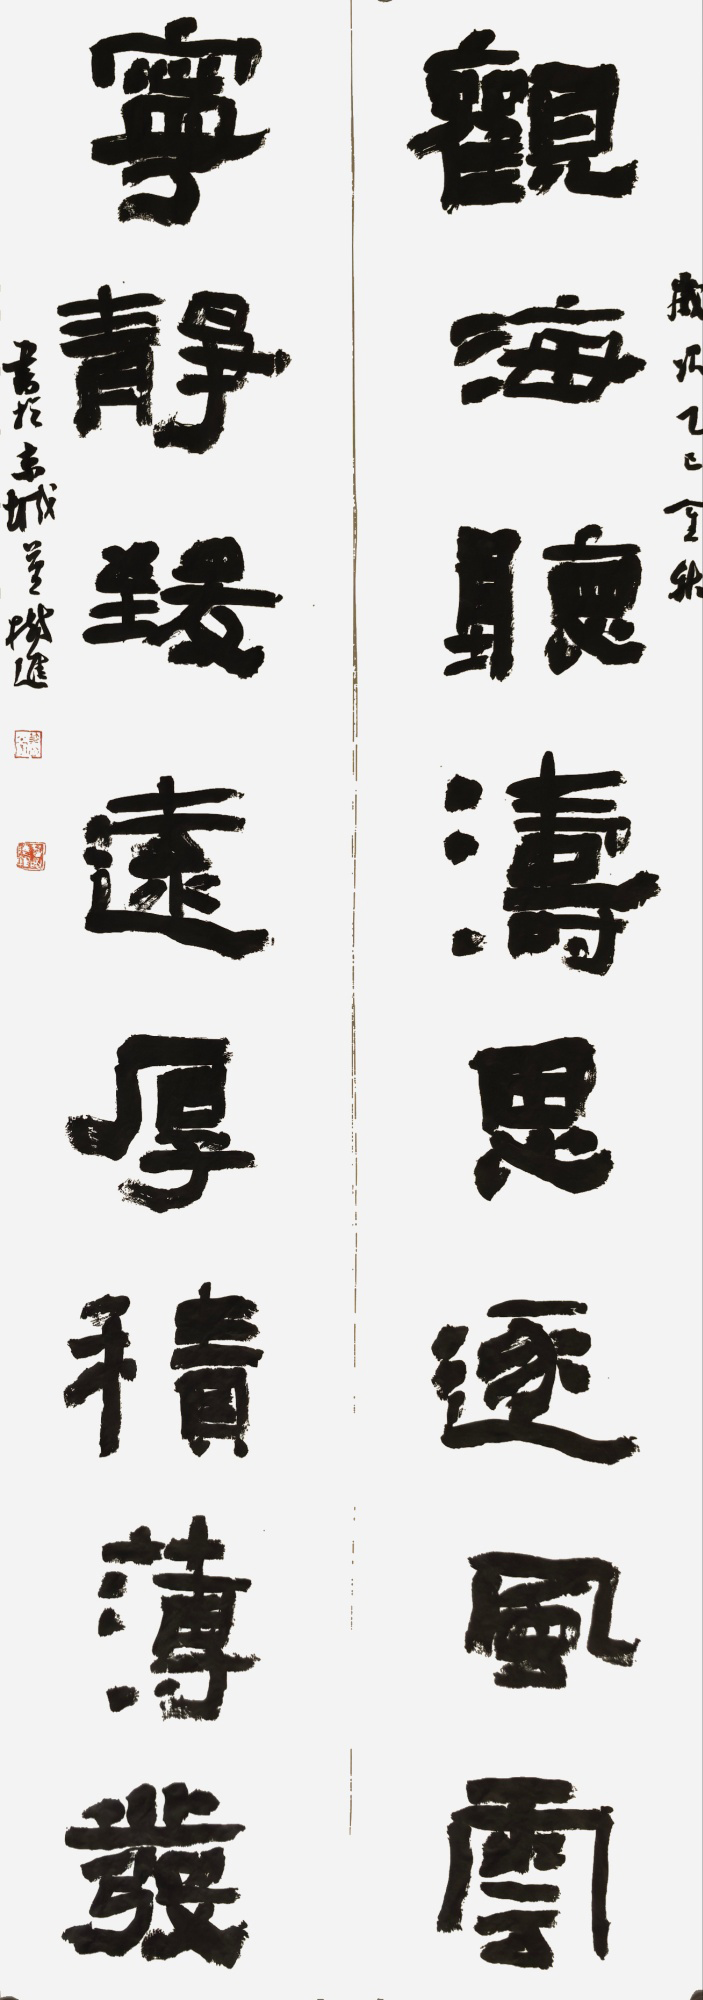 觀海聽濤思逐風雲
歲次乙巳金秋
寧靜致遠厚積薄發
書於京城